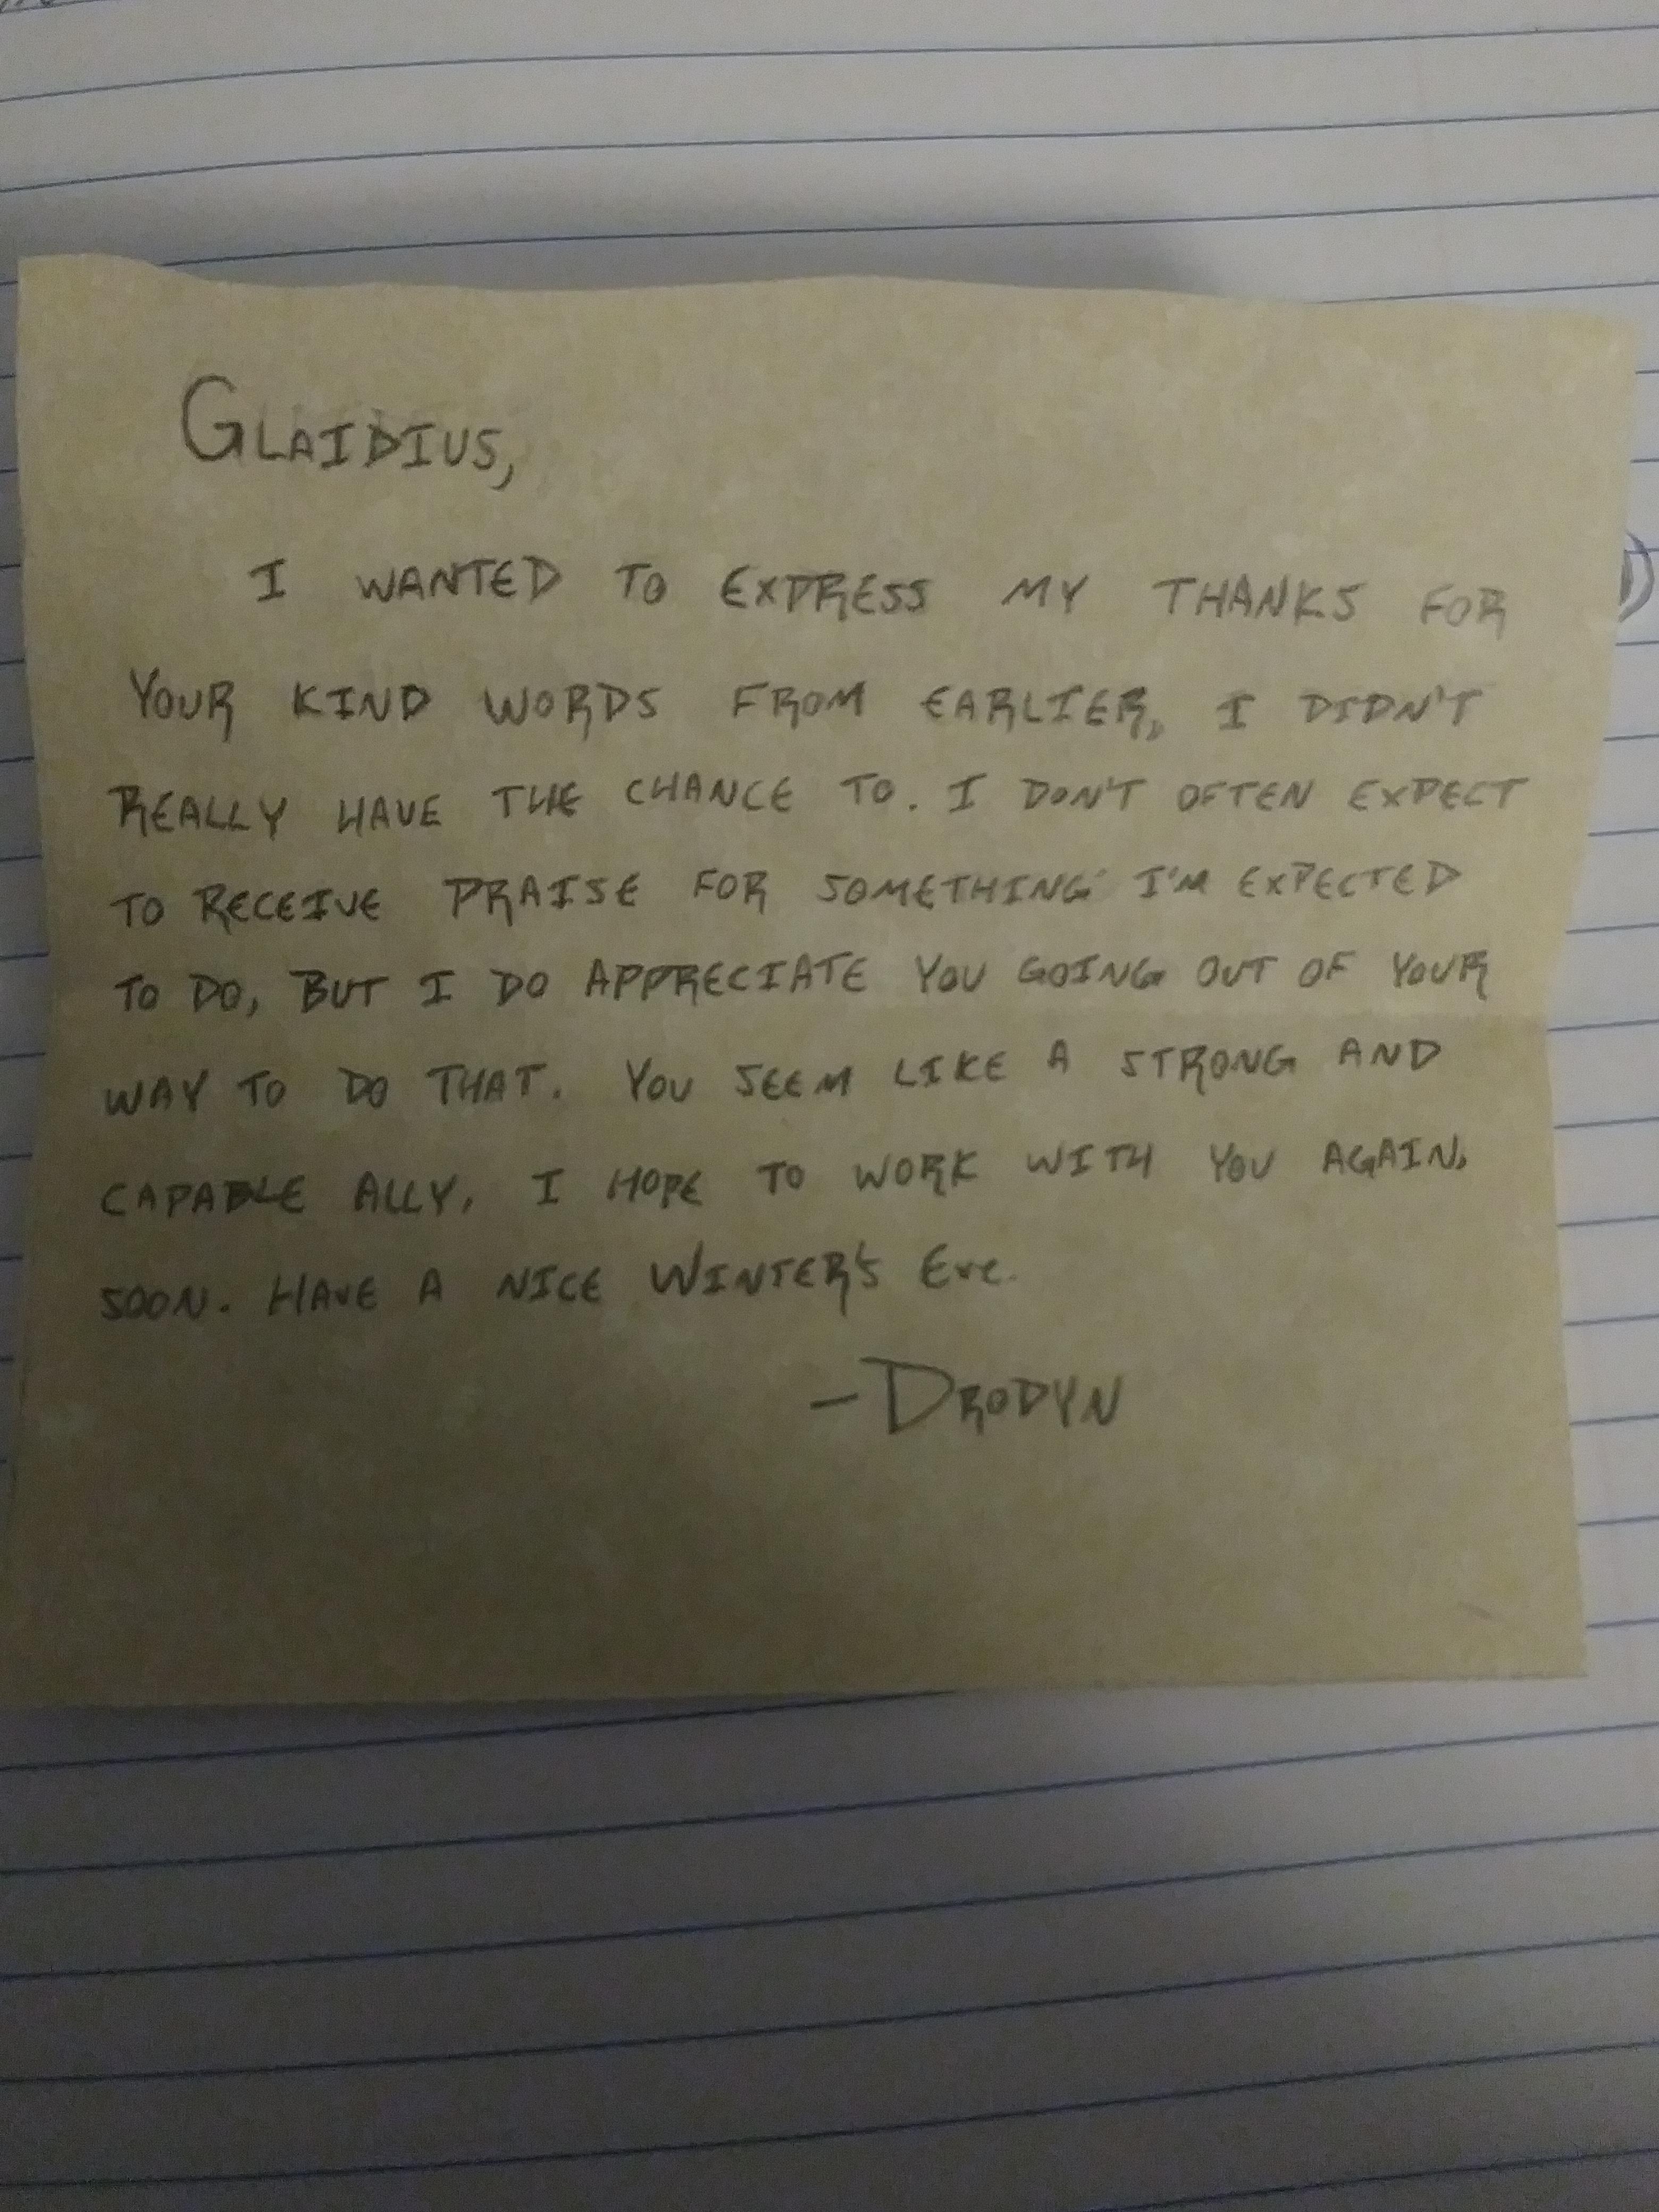 GLAIDIUS,
I WANTED TO EXPRESS MY THANKS FOR
YOUR KIND WORDS FROM EARLIER, I DIDN'T
REALLY HAVE THE CHANCE TO. I DON'T OFTEN EXPECT
TO RECEIVE PRAISE FOR SOMETHING I'M EXPECTED
TO DO, BUT I DO APPRECIATE YOU GOING OUT OF YOUR
WAY TO DO THAT. YOU SEEM LIKE A STRONG AND
CAPABLE ALLY, I HOPE TO WORK WITH YOU AGAIN.
SOON. HAVE A NICE WINTER'S Eve.
-DRODYN